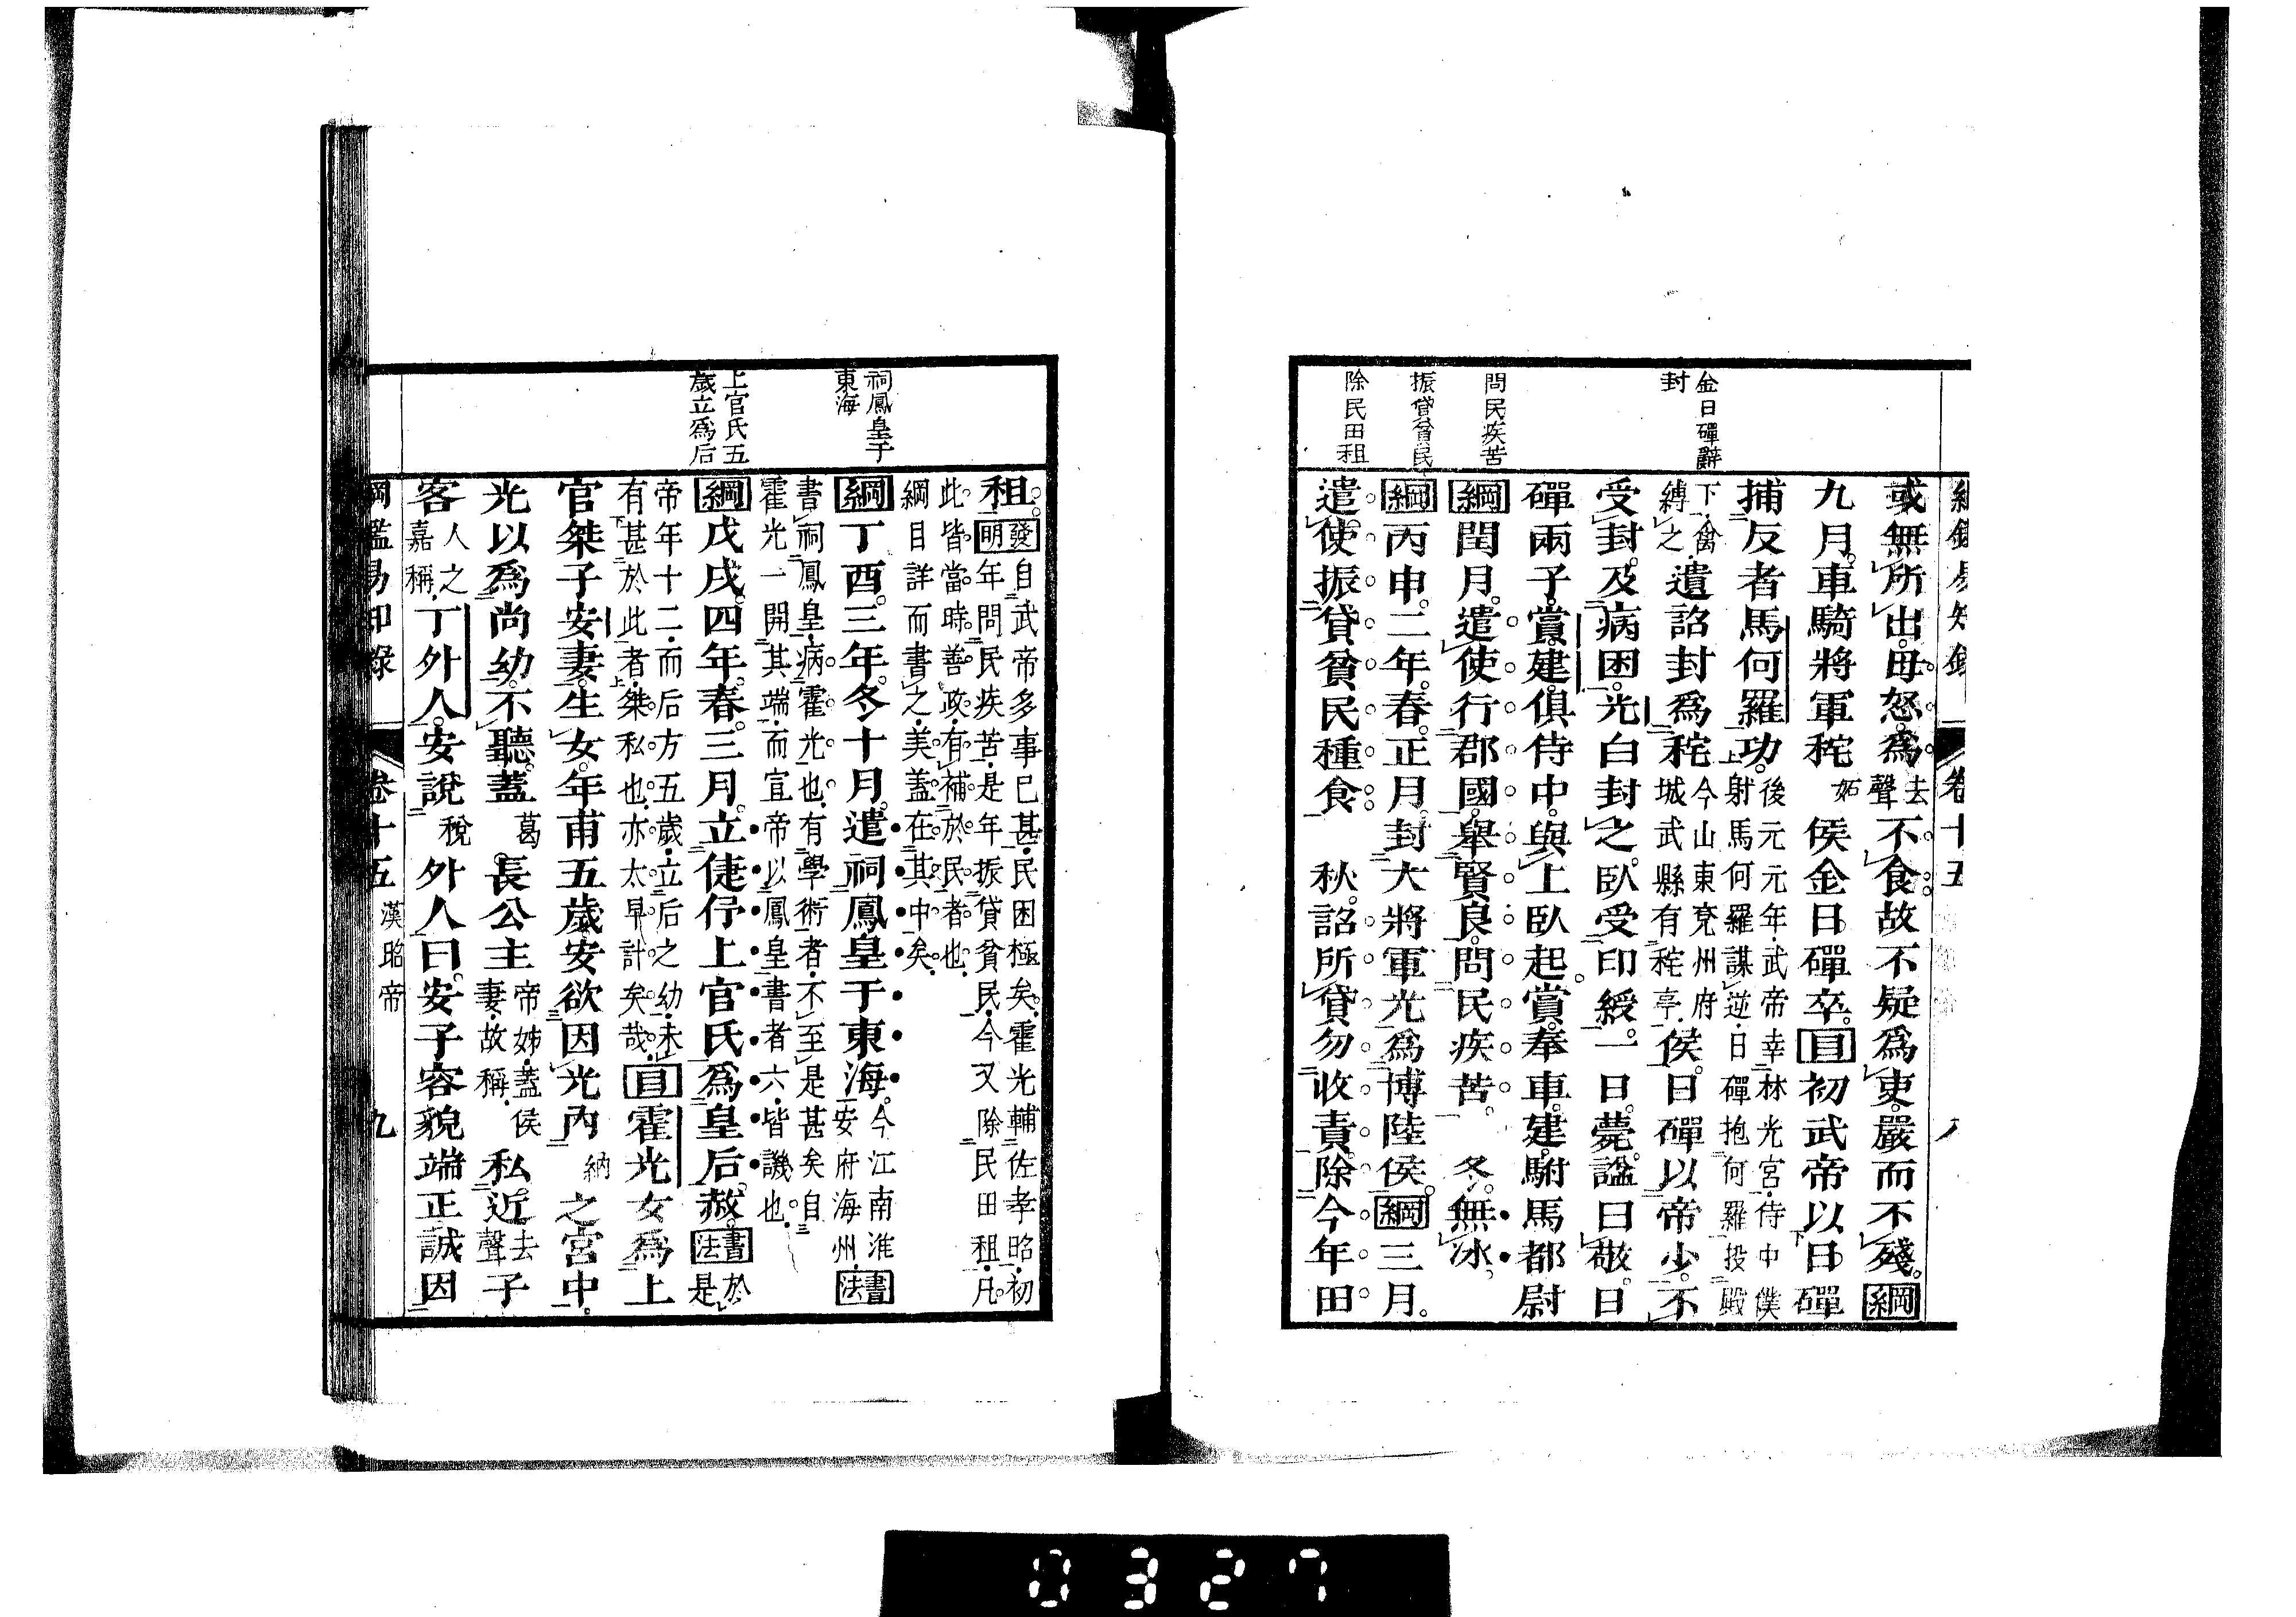 綱鑑易知錄 卷十五 八
金日磾辭
封
問民疾苦
振貸貧民
除民田租
或無所出母怒爲去聲不食故不疑爲吏嚴而不殘綱
九月車騎將軍秺妬侯金日磾卒目初武帝以日磾
捕反者馬何羅功後元元年武帝幸林光宮侍中僕射馬何羅謀逆日磾抱何羅投殿
下禽縛之遺詔封爲秺今山東兗州府城武縣有秺亭侯日磾以帝少不
受封及病困光白封之臥受印綬一日薨諡曰敬日
磾兩子賞建俱侍中與上臥起賞奉車建駙馬都尉
綱閏月遣使行郡國舉賢良問民疾苦 冬無冰
綱丙申二年春正月封大將軍光爲博陸侯綱三月
遣使振貸貧民種食 秋詔所貸勿收責除今年田
祠鳳皇于
東海
上官氏五
歲立爲后
租發明自武帝多事已甚民困極矣霍光輔佐孝昭初年問民疾苦是年振貸貧民今又除民田租凡
此皆當時善政有補於民者也綱目詳而書之美蓋在其中矣
綱丁酉三年冬十月遣祠鳳皇于東海今江南淮安府海州書法
書祠鳳皇病霍光也有學術者不至是甚矣自霍光一開其端而宣帝以鳳皇書者六皆譏也
綱戊戌四年春三月立倢伃上官氏爲皇后赦書法於是
帝年十二而后方五歲立后之幼未有甚於此者桀私也亦太早計矣哉目霍光女爲上
官桀子安妻生女年甫五歲安欲因光內納之宮中
光以爲尚幼不聽蓋葛長公主帝姊蓋侯妻故稱私近去聲子
客人之嘉稱丁外人安說稅外人曰安子容貌端正誠因
綱鑑易知錄 卷十五 漢昭帝 九
0327